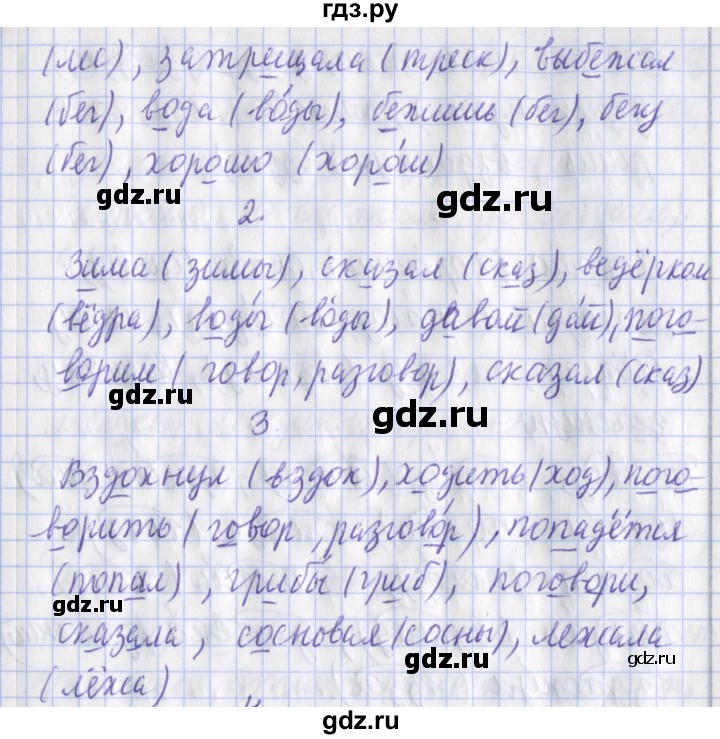 гдз.ру
(лес), затрещала (треск), выбежал
(бег), вода (во́ды), бежишь (бег), бегу
(бег), хорошо (хоро́ш)
gdz.ru
gdz.ru
2.
Зима (зимы), сказал (сказ), ведёрком
(вёдра), воды́ (во́ды), давай (да́й), пого-
ворим (говор, разговор), сказал (сказ)
gdz.ru
gdz.ru
3
Вздохнул (вздох), ходить (ход), пого-
ворить (говор, разгово́р), попадётся
(попал), грибы́ (гриб), поговори,
gdz.ru
сказала, сосновая (сосны), лежала
gdz.ru
gdz.ru
(лёжа)
gdz.ru